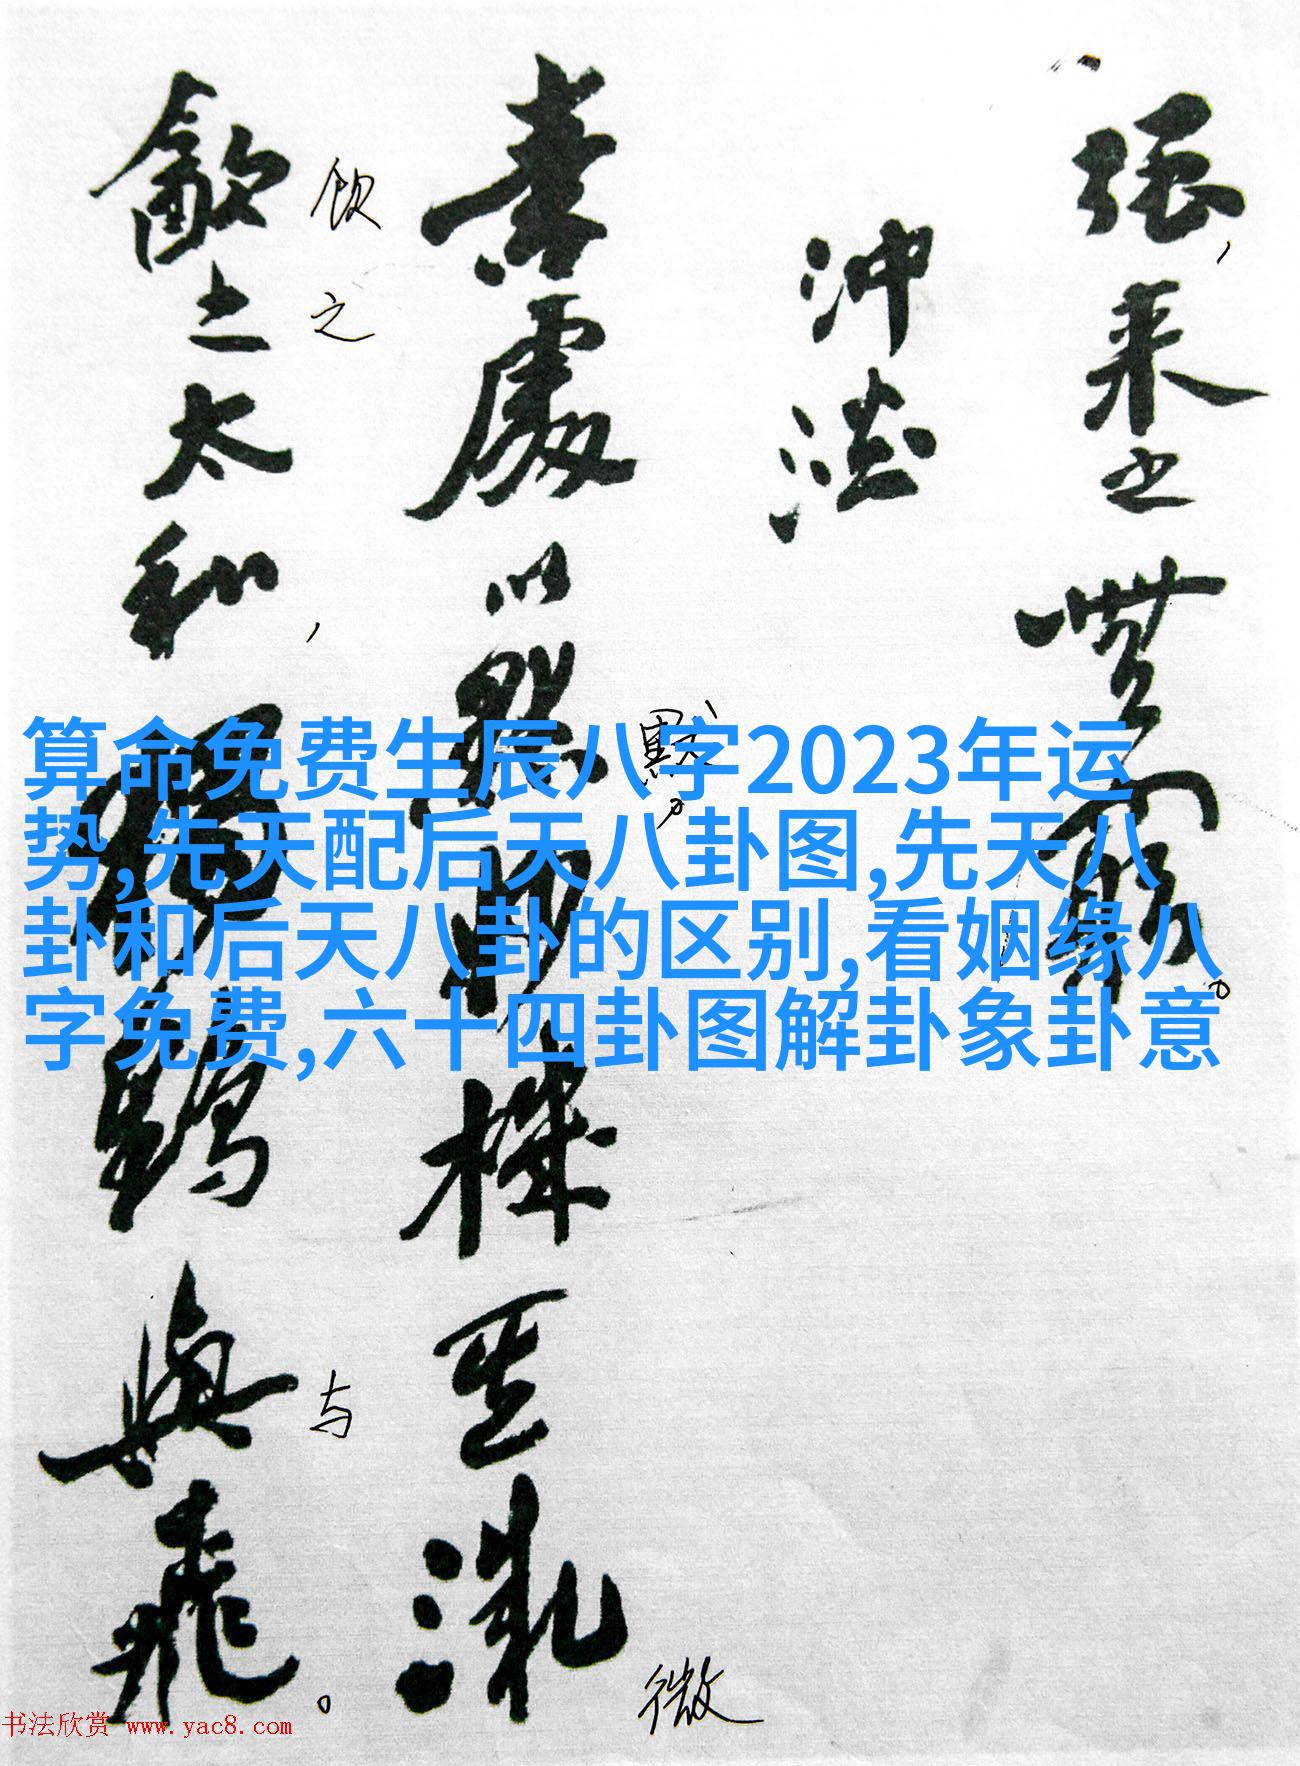 强，来之無窮。
沖澹
素處以默。妙機其微
默
微
飲之太和，獨鶴與飛。
饮
之
与
算命免费生辰八字2023年运
势,先天配后天八卦图,先天八
卦和后天八卦的区别,看姻缘八
字免费,六十四卦图解卦象卦意
书法欣赏 www.yac8.com